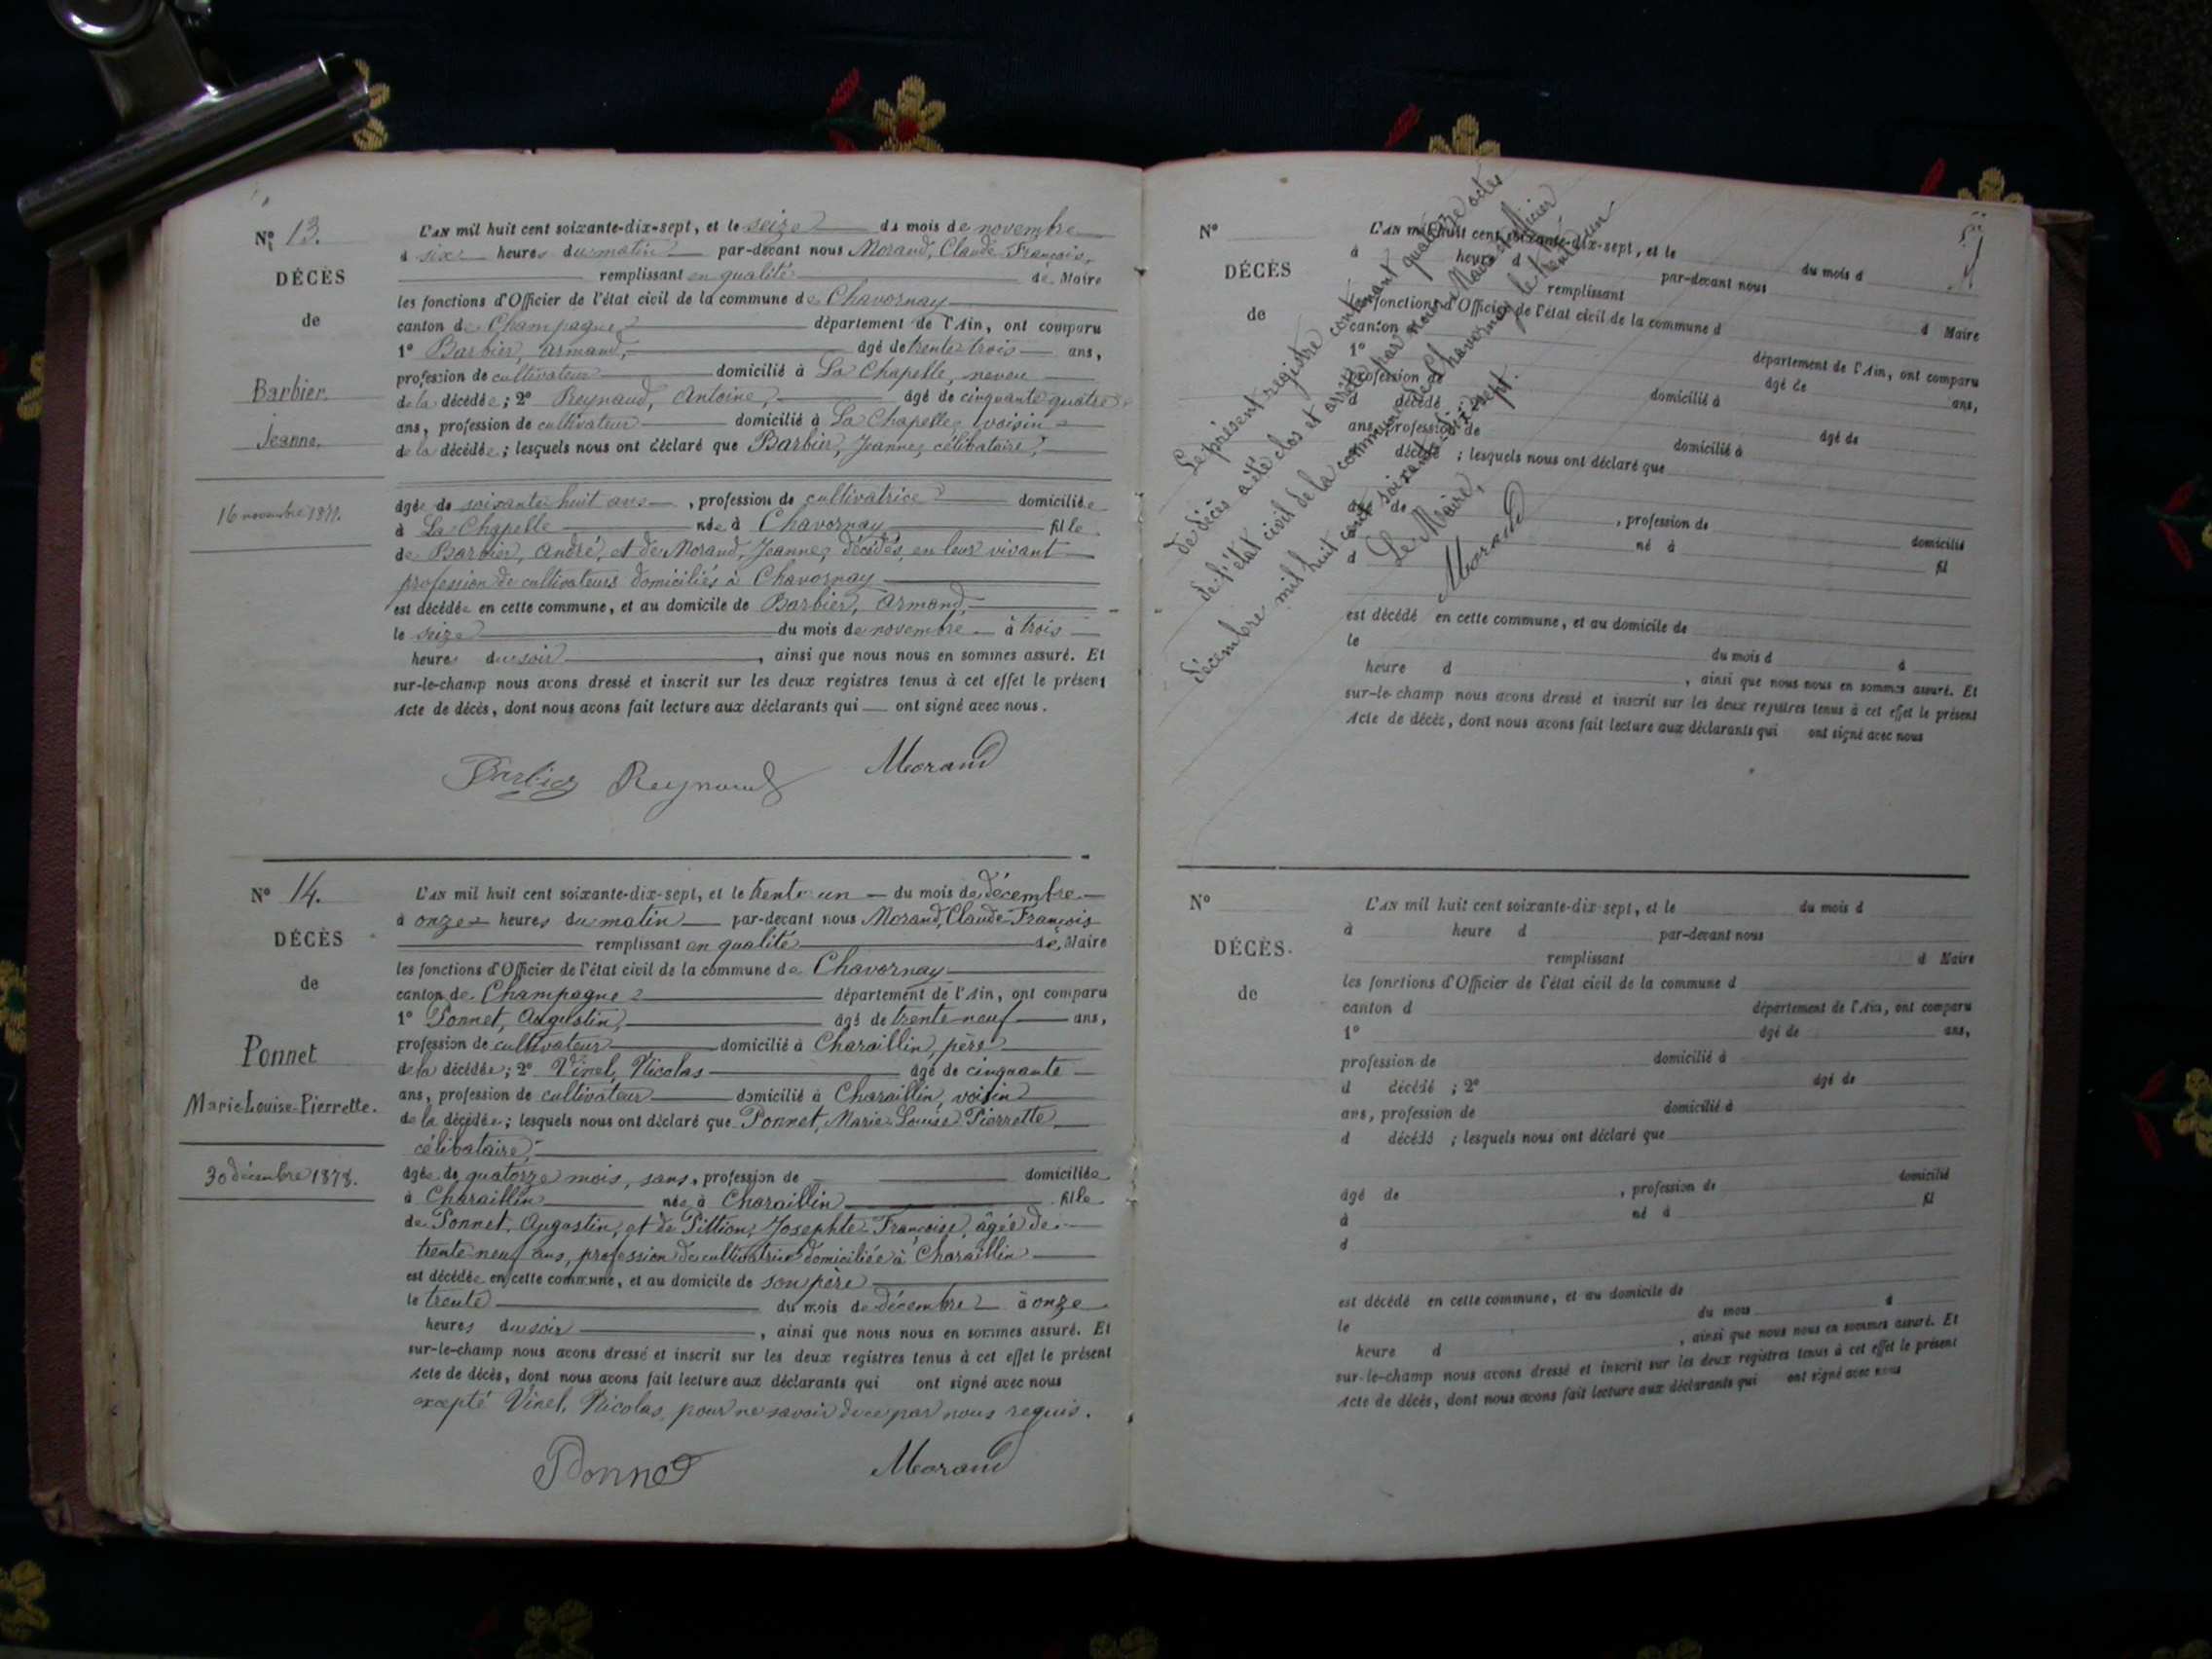 N° 13.
DÉCÈS
de
Barbier
Jeanne.
16 novembre 1877.
L'AN mil huit cent soixante-dix-sept, et le seize du mois de novembre
à six heures du matin par-devant nous Morand, Claude François,
remplissant en qualité de Maire
les fonctions d'Officier de l'état civil de la commune de Chavornay
canton de Champagne département de l'Ain, ont comparu
1° Barbier, Armand, âgé de trente trois ans,
profession de cultivateur domicilié à La Chapelle, neveu
de la décédée; 2° Reynaud, Antoine, âgé de cinquante quatre
ans, profession de cultivateur domicilié à La Chapelle, voisin
de la décédée; lesquels nous ont déclaré que Barbier, Jeanne, célibataire,
âgée de soixante huit ans, profession de cultivatrice domiciliée
à La Chapelle née à Chavornay fille
de Barbier, André, et de Morand, Jeanne, décédés, en leur vivant
profession de cultivateurs domiciliés à Chavornay
est décédée en cette commune, et au domicile de Barbier, Armand,
le seize du mois de novembre à trois
heures du soir, ainsi que nous nous en sommes assuré. Et
sur-le-champ nous avons dressé et inscrit sur les deux registres tenus à cet effet le présent
Acte de décès, dont nous avons fait lecture aux déclarants qui ont signé avec nous.
Barbier Reynaud Morand
N° 14.
DÉCÈS
de
Ponnet
Marie-Louise-Pierrette.
30 décembre 1878.
L'AN mil huit cent soixante-dix-sept, et le trente un du mois de décembre
à onze heures du matin par-devant nous Morand, Claude François
remplissant en qualité de Maire
les fonctions d'Officier de l'état civil de la commune de Chavornay
canton de Champagne département de l'Ain, ont comparu
1° Ponnet, Augustin, âgé de trente neuf ans,
profession de cultivateur domicilié à Charaillin, père
de la décédée; 2° Vinel, Nicolas âgé de cinquante
ans, profession de cultivateur domicilié à Charaillin, voisin
de la décédée; lesquels nous ont déclaré que Ponnet, Marie-Louise Pierrette
célibataire,
âgée de quatorze mois, sans, profession de domiciliée
à Charaillin née à Charaillin fille
de Ponnet, Augustin, et de Pittion, Josephte-Françoise, âgée de
trente neuf ans, profession de cultivatrice domiciliée à Charaillin
est décédée en cette commune, et au domicile de son père
le trente du mois de décembre à onze
heures du soir, ainsi que nous nous en sommes assuré. Et
sur-le-champ nous avons dressé et inscrit sur les deux registres tenus à cet effet le présent
Acte de décès, dont nous avons fait lecture aux déclarants qui ont signé avec nous
excepté Vinel, Nicolas, pour ne savoir de ce par nous requis.
Ponnet Morand
N°
DÉCÈS
de
L'AN mil huit cent soixante-dix-sept, et le du mois d
à heure d par-devant nous
remplissant d Maire
les fonctions d'Officier de l'état civil de la commune d
canton département de l'Ain, ont comparu
1° âgé de ans,
profession de domicilié à
d décédé âgé de
ans, profession de domicilié à
décédé ; lesquels nous ont déclaré que
âgé de , profession de domicilié
né à fil
d
est décédé en cette commune, et au domicile de
le du mois d à
heure d , ainsi que nous nous en sommes assuré. Et
sur-le-champ nous avons dressé et inscrit sur les deux registres tenus à cet effet le présent
Acte de décès, dont nous avons fait lecture aux déclarants qui ont signé avec nous
Le présent registre contenant quatorze actes
de décès a été clos et arrêté par nous Maire officier
de l'état civil de la commune de Chavornay le trente un
décembre mil huit cent soixante-dix-sept.
Le Maire,
Morand
N°
DÉCÈS.
de
L'AN mil huit cent soixante-dix-sept, et le du mois d
à heure d par-devant nous
remplissant d Maire
les fonctions d'Officier de l'état civil de la commune d
canton d département de l'Ain, ont comparu
1° âgé de ans,
profession de domicilié à
d décédé ; 2° âgé de
ans, profession de domicilié à
d décédé ; lesquels nous ont déclaré que
âgé de , profession de domicilié
à né à fil
d
est décédé en cette commune, et au domicile de
le du mois à
heure d , ainsi que nous nous en sommes assuré. Et
sur-le-champ nous avons dressé et inscrit sur les deux registres tenus à cet effet le présent
Acte de décès, dont nous avons fait lecture aux déclarants qui ont signé avec nous